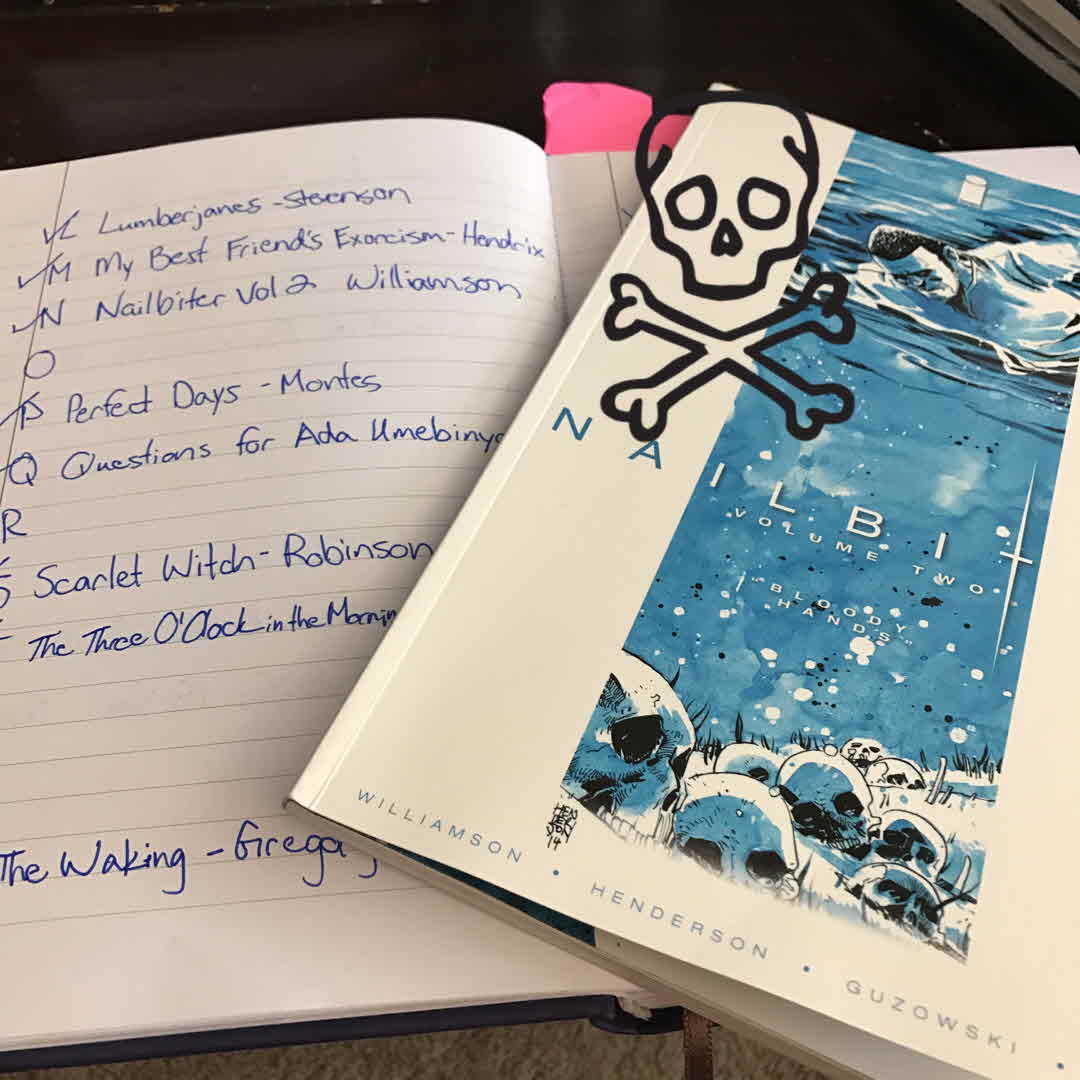 L Lumberjanes - Stevenson
M My Best Friend's Exorcism - Hendrix
N Nailbiter Vol 2 Williamson
O
P Perfect Days - Montes
Q Questions for Ada Umebinyu
R
S Scarlet Witch - Robinson
The Three O'Clock in the Mornin
The Waking - Grega
NAILBIT
VOLUME TWO
"BLOODY
HANDS"
WILLIAMSON • HENDERSON • GUZOWSKI •